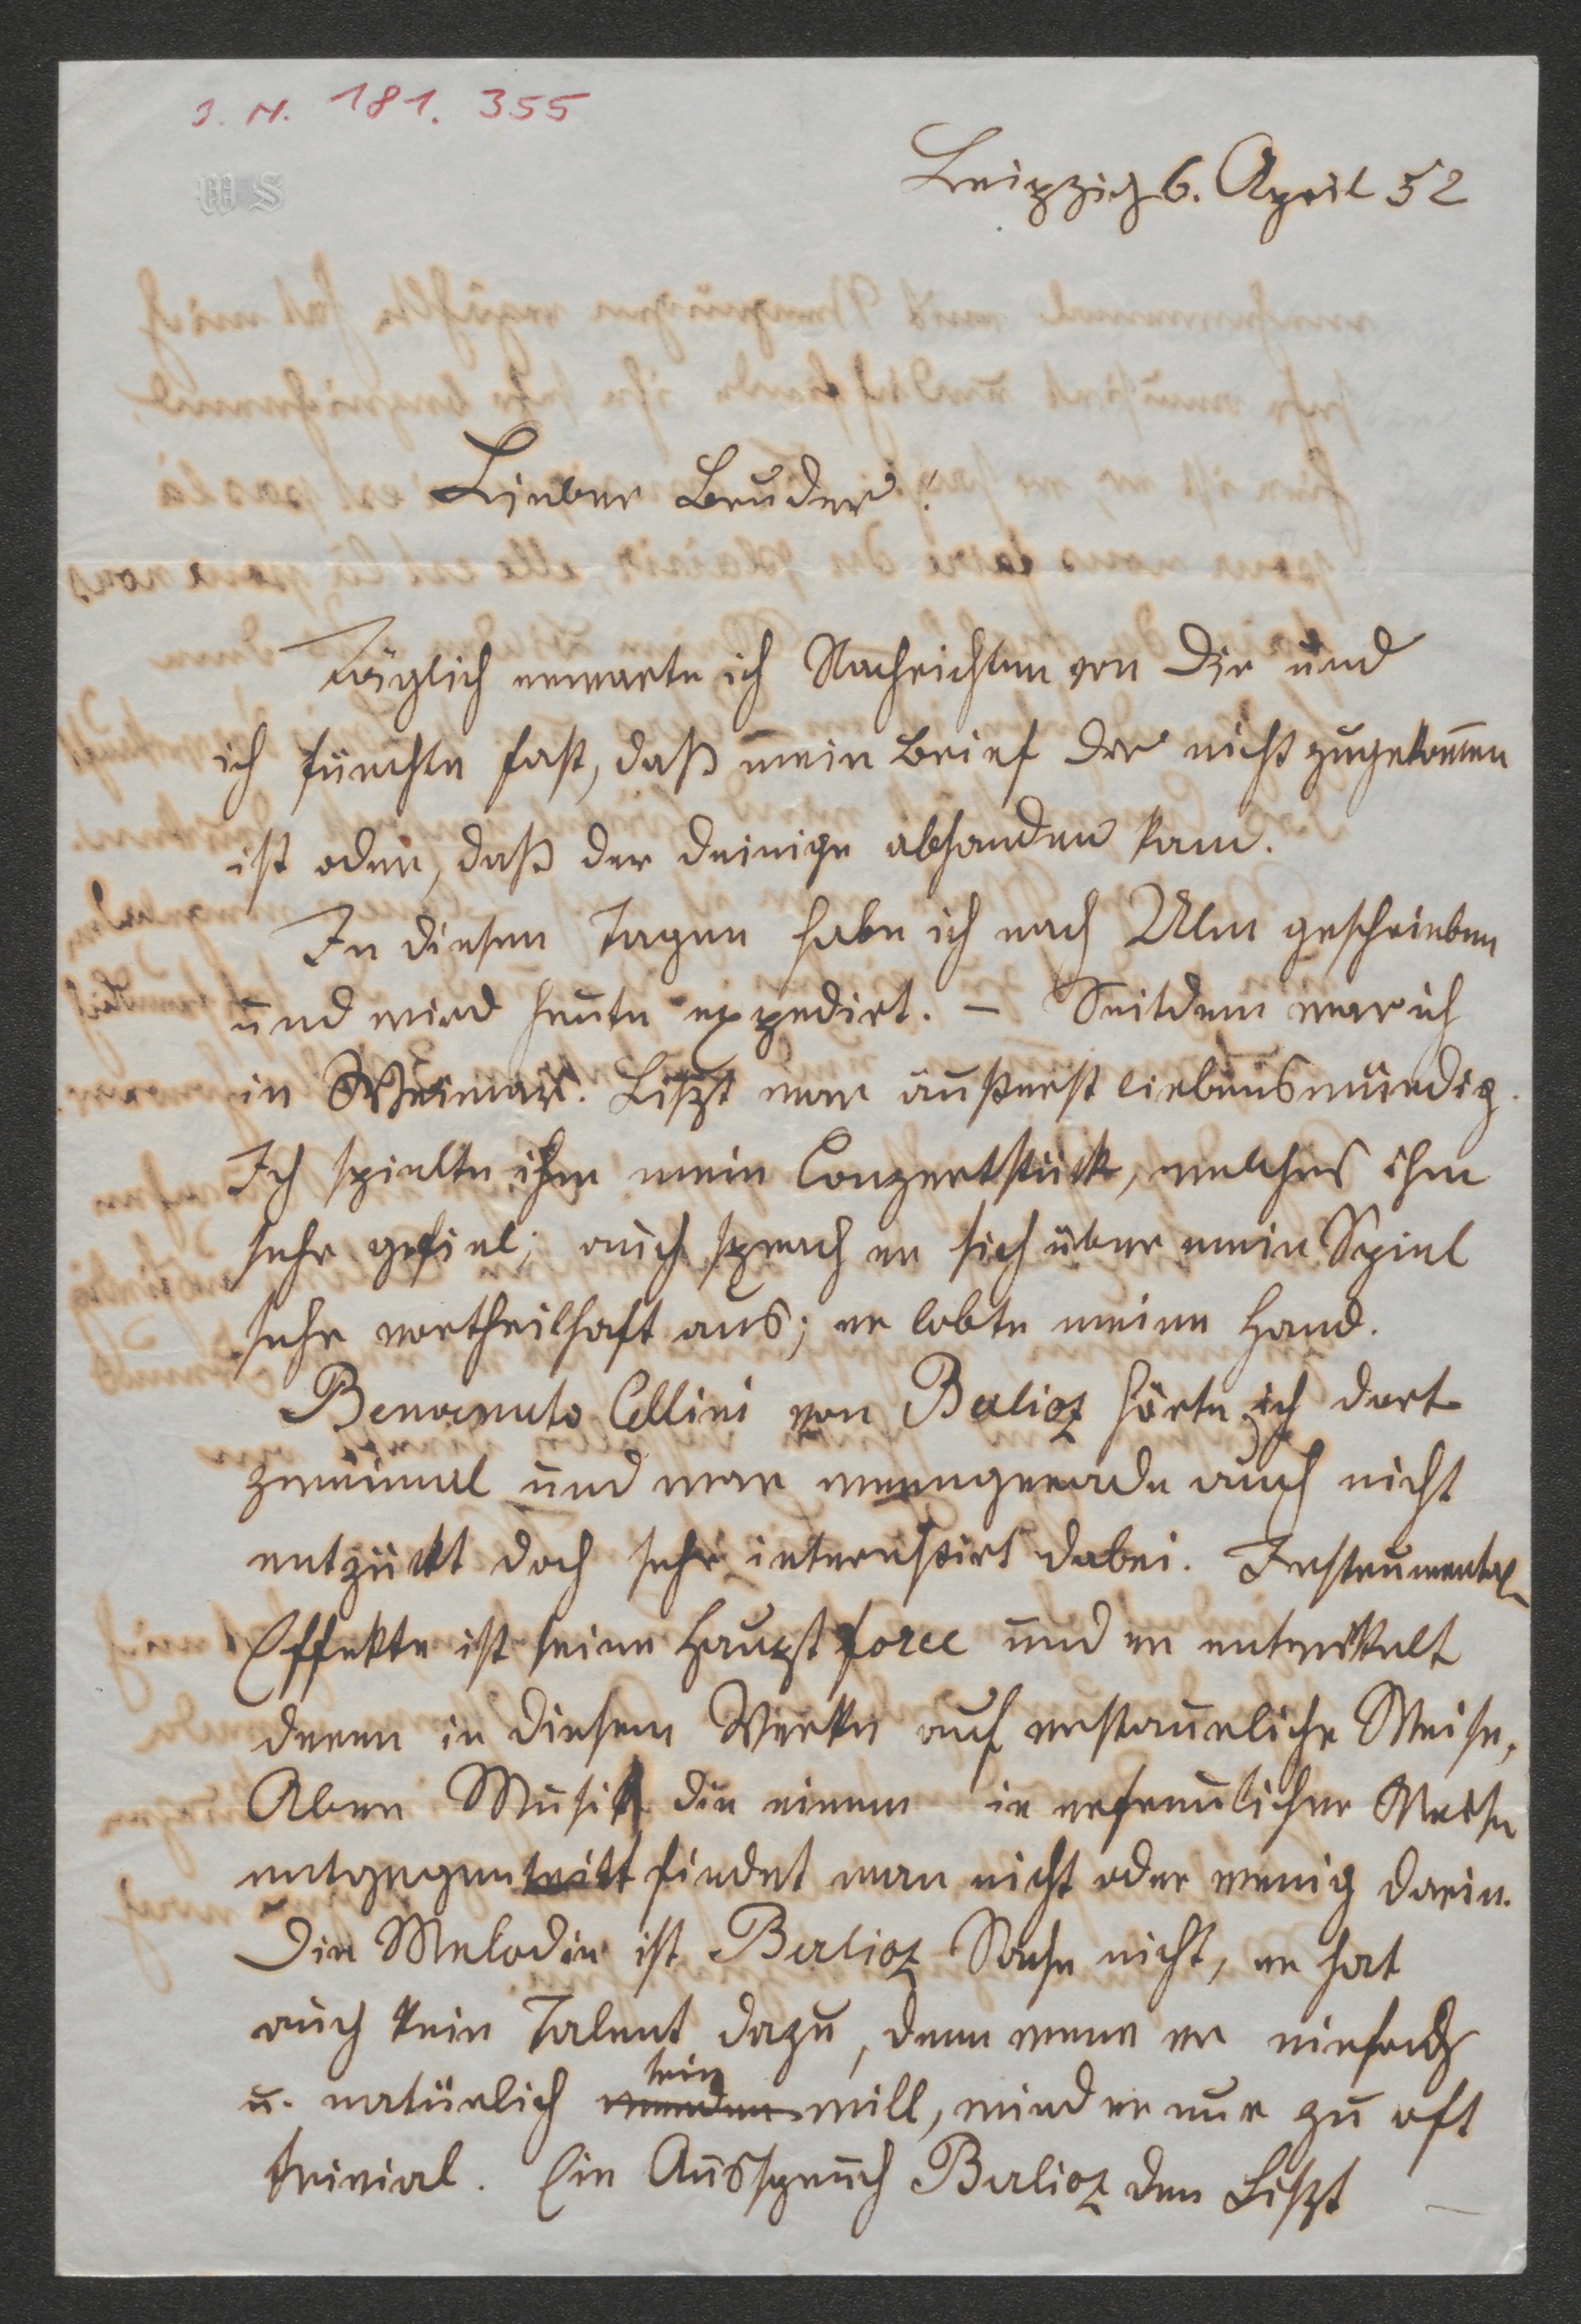 J. N. 181.355
WS
Leipzig 6. April 52
Lieber Bruder!
Täglich erwarte ich Nachrichten von Dir und
ich fürchte fast, daß mein Brief Dir nicht zugekom̄en
ist oder, daß der Deinige abhanden kam.
In diesen Tagen habe ich nach Ulm geschrieben
und wird heute expedirt. – Seitdem war ich
in Weimar. Liszt war äußerst liebenswürdig.
Ich spielte ihm mein Conzertstück, welches ihm
sehr gefiel; auch sprach er sich über mein Spiel
sehr vortheilhaft aus; er lobte meine Hand.
Benvenuto Cellini von Berlioz hörte ich dort
zweimal und war wenngerade auch nicht
entzückt doch sehr interessirt dabei. Instrumental-
Effekte ist seine Hauptforce und er entwickelt
deren in diesem Werke auf erstaunliche Weise,
Aber Musik die einem in erfreulicher Weise
entgegentritt findet man nicht oder wenig darin.
Die Melodie ist Berlioz Sache nicht, er hat
auch kein Talent dazu, denn wenn er einfach
u. natürlich werden sein will, wird er nur zu oft
trivial. Ein Ausspruch Berlioz den Liszt